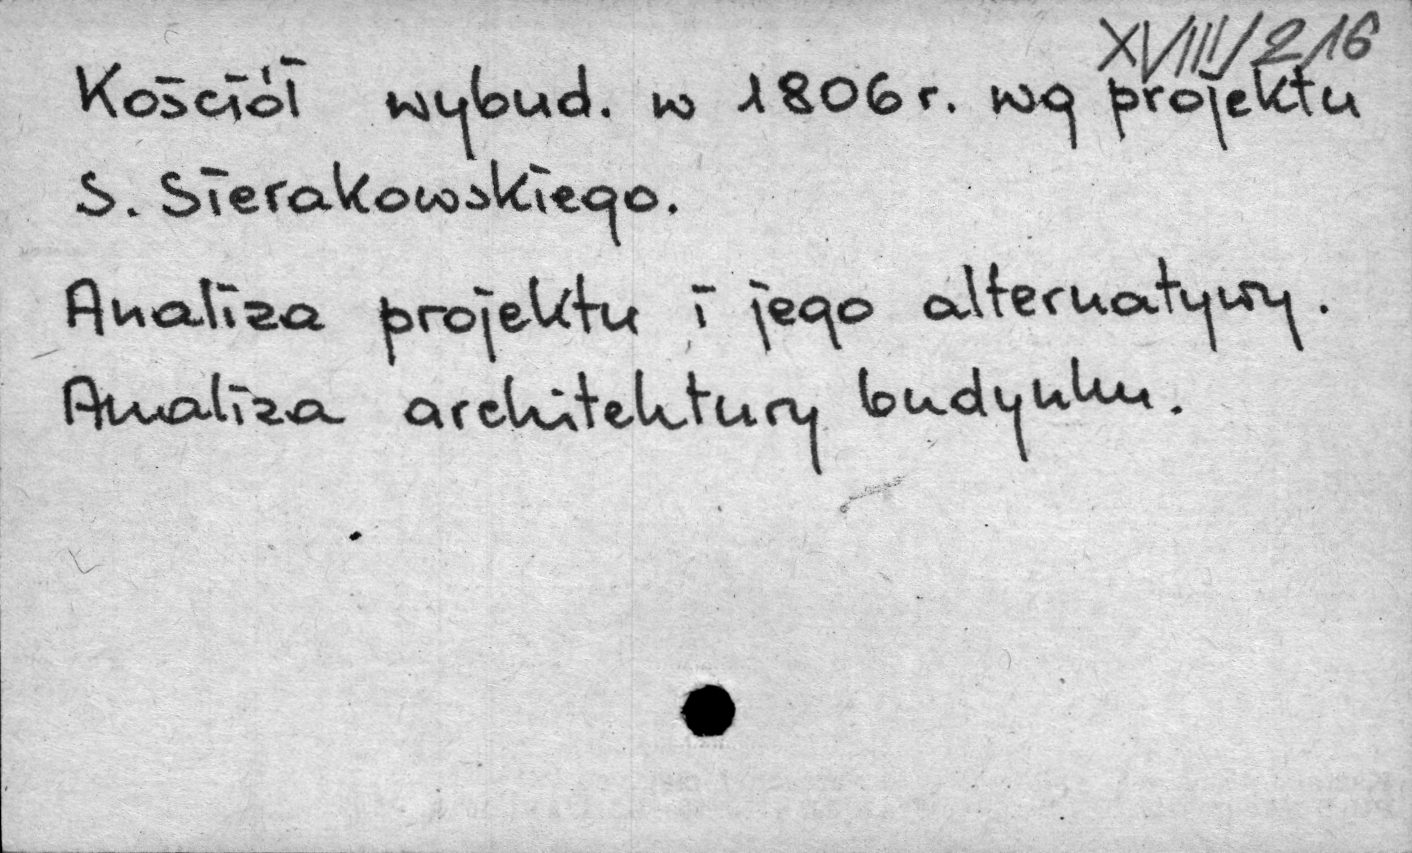 XVIII/216
Kościół wybud. w 1806 r. wg projektu
S. Sierakowskiego.
Analiza projektu i jego alternatywy.
Analiza architektury budynku.